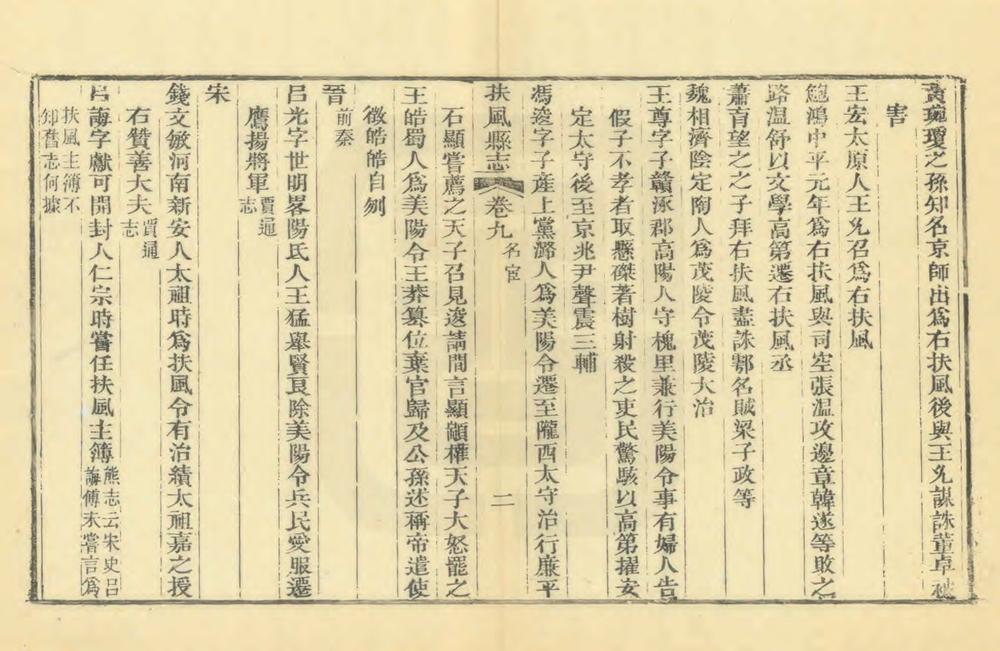 黃琬瓊之孫知名京師出爲右扶風後與王允謀誅董卓被
害
王宏太原人王允召爲右扶風
鮑鴻中平元年爲右扶風與司空張溫攻邊章韓遂等敗之
路溫舒以文學高第遷右扶風丞
蕭育望之之子拜右扶風盡誅鄠名賊梁子政等
魏相濟陰定陶人爲茂陵令茂陵大治
王尊字子贛涿郡高陽人守槐里兼行美陽令事有婦人告
假子不孝者取懸磔著樹射殺之吏民驚駭以高第擢安
定太守後至京兆尹聲震三輔
馮逡字子產上黨潞人爲美陽令遷至隴西太守治行廉平
扶風縣志 卷九 名宦 二
石顯嘗薦之天子召見逡請間言顯顓權天子大怒罷之
王皓蜀人爲美陽令王莽篡位棄官歸及公孫述稱帝遣使
徵皓皓自刎
晉 前秦
呂光字世明畧陽氏人王猛舉賢良除美陽令兵民愛服遷
鷹揚將軍 賈通志
宋
錢文敏河南新安人太祖時爲扶風令有治績太祖嘉之授
右贊善大夫 賈通志
呂誨字獻可開封人仁宗時嘗任扶風主簿 熊志云宋史呂誨傳未嘗言爲
扶風主簿不知舊志何據